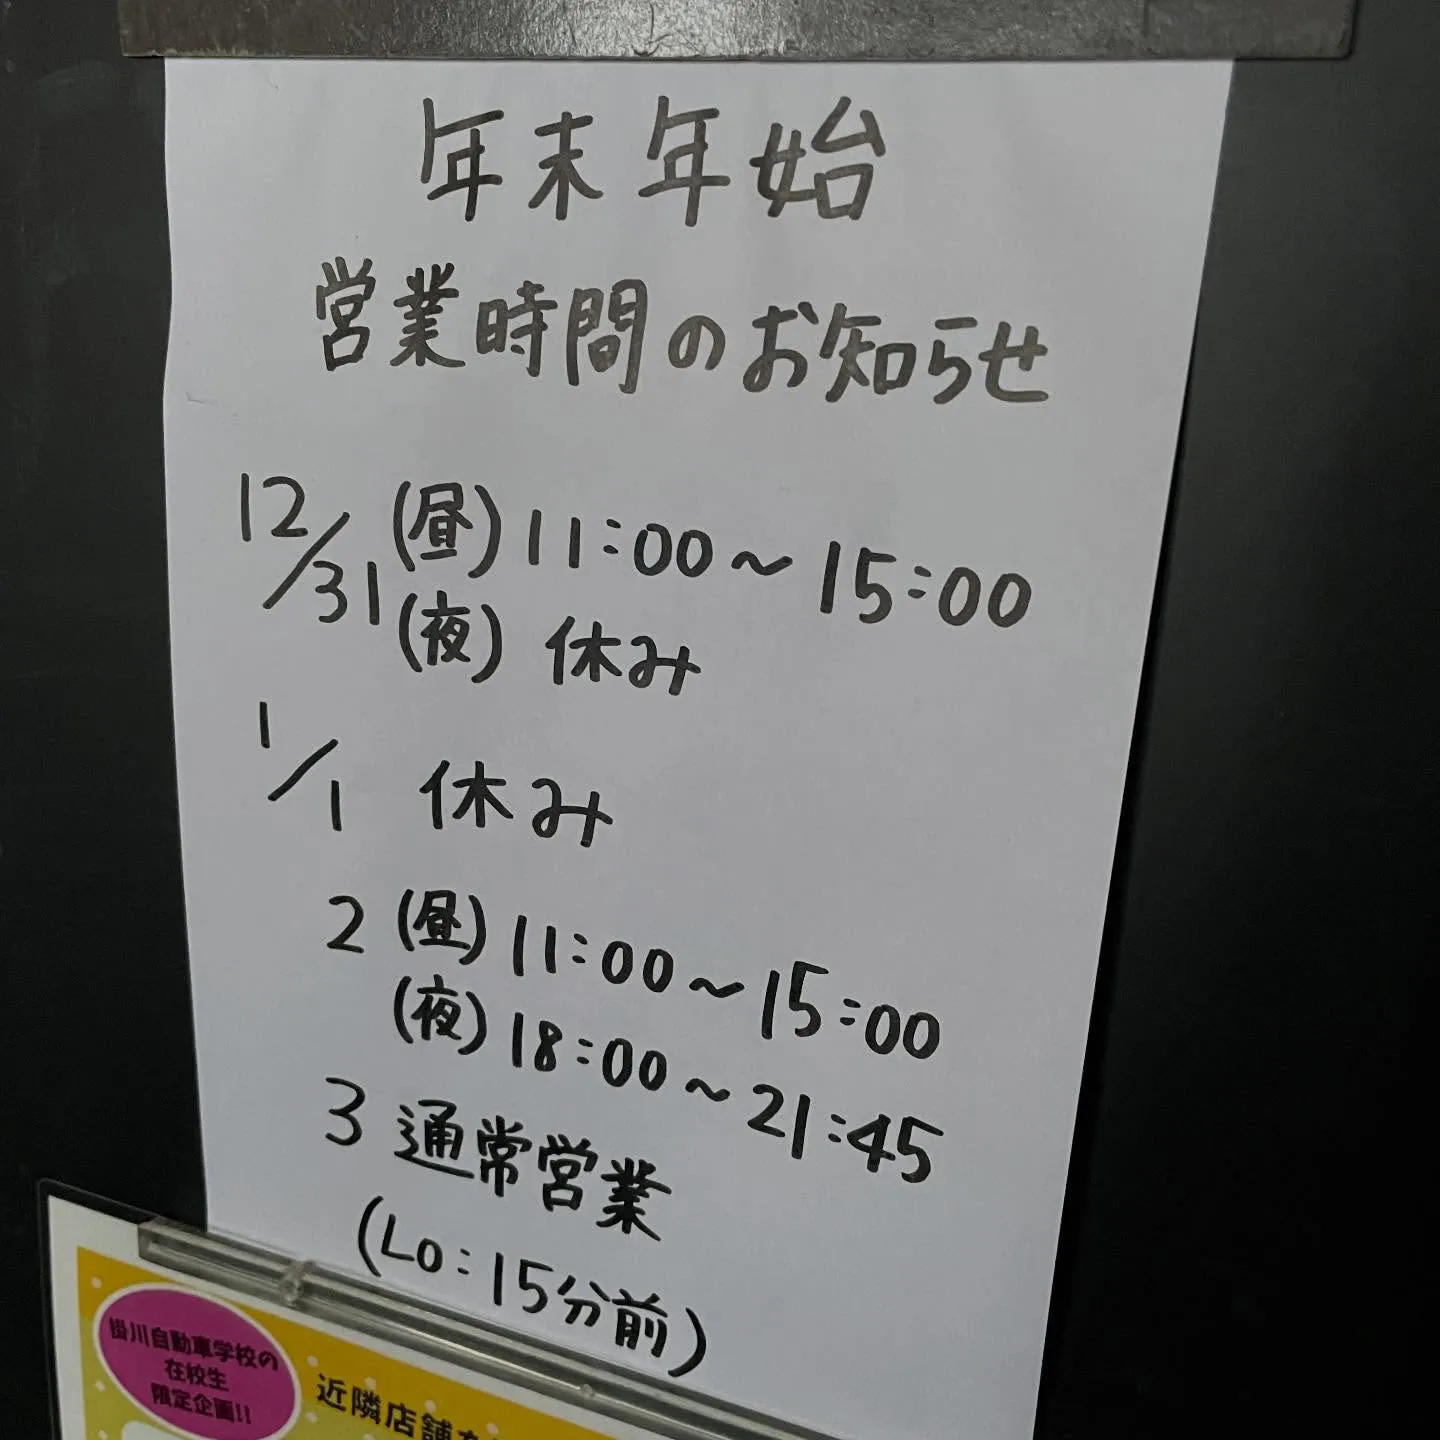 年末年始
営業時間のお知らせ
12/31 (昼) 11:00〜15:00
(夜) 休み
1/1 休み
2 (昼) 11:00〜15:00
(夜) 18:00〜21:45
3 通常営業
(LO:15分前)
掛川自動車学校の
在校生
限定企画!!
近隣店舗